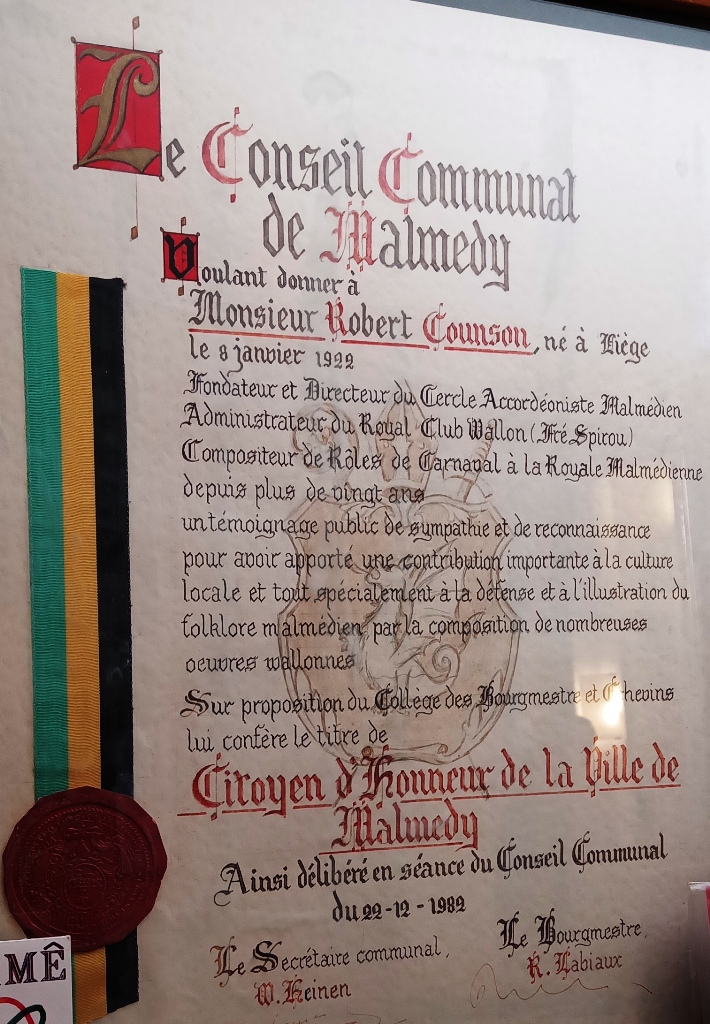 Le Conseil Communal
de Malmedy
Voulant donner à
Monsieur Robert Counson, né à Liège
le 8 janvier 1922
Fondateur et Directeur du Cercle Accordéoniste Malmédien
Administrateur du Royal Club Wallon (Fré Spirou)
Compositeur de Rôles de Carnaval à la Royale Malmédienne
depuis plus de vingt ans
un témoignage public de sympathie et de reconnaissance
pour avoir apporté une contribution importante à la culture
locale et tout spécialement à la défense et à l'illustration du
folklore malmédien par la composition de nombreuses
oeuvres wallonnes
Sur proposition du Collège des Bourgmestre et Echevins
lui confère le titre de
Citoyen d'Honneur de la Ville de
Malmedy
Ainsi délibéré en séance du Conseil Communal
du 22-12-1982
Le Secrétaire communal,
W. Heinen
Le Bourgmestre,
R. Labiaux
MÊ